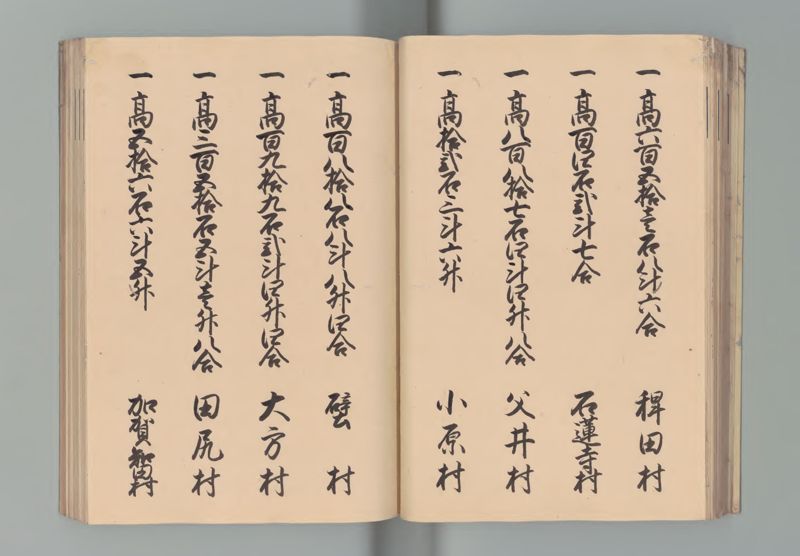 一 髙六百五拾壱石八斗六合 稗田村
一 髙百四石弐斗七合 石蓮寺村
一 髙八百八拾七石四斗四升八合 父井村
一 髙拾弐石三斗六升 小原村
一 髙百八拾八石八斗八升四合 壁村
一 髙百九拾九石弐斗四升四合 大方村
一 髙三百五拾石五斗壱升八合 田尻村
一 髙五拾六石六斗五升 加賀知田村